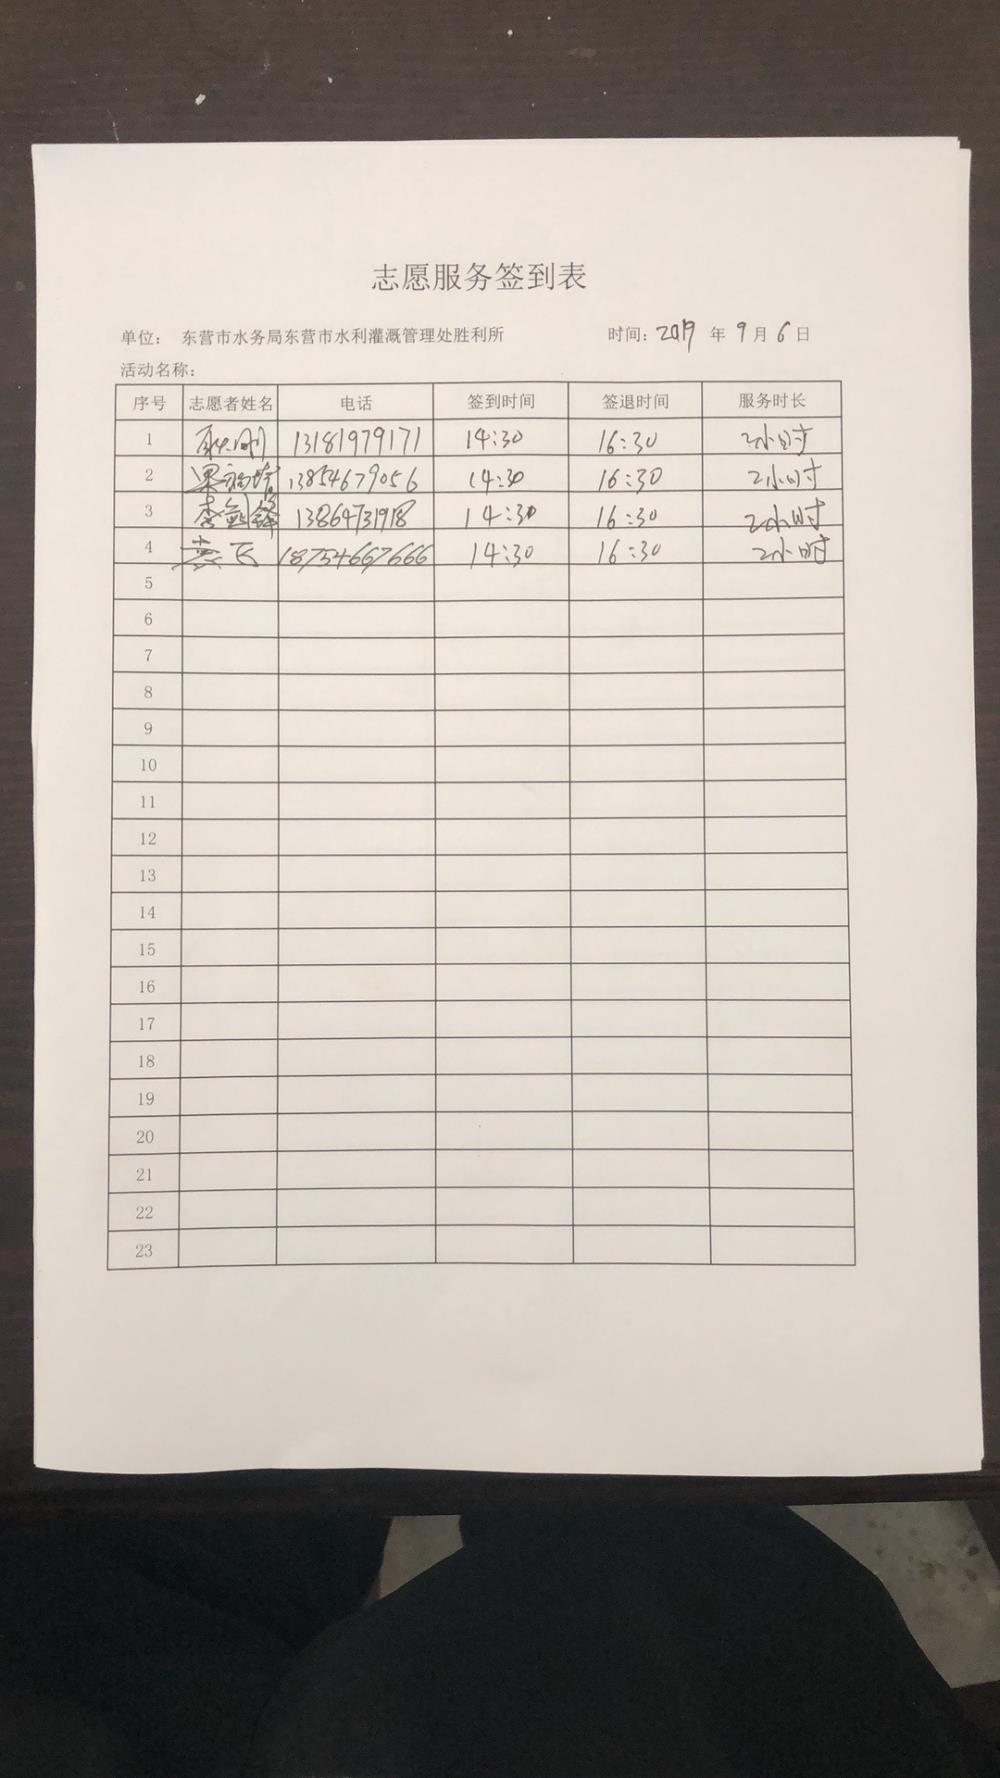 志愿服务签到表
单位： 东营市水务局东营市水利灌溉管理处胜利所 时间: 2019 年 9 月 6 日
活动名称:
序号 志愿者姓名 电话 签到时间 签退时间 服务时长
1 耿刚 13181979171 14:30 16:30 2小时
2 梁 13854679056 14:30 16:30 2小时
3 李剑锋 13864731918 14:30 16:30 2小时
4 袁飞 18754667666 14:30 16:30 2小时
5
6
7
8
9
10
11
12
13
14
15
16
17
18
19
20
21
22
23